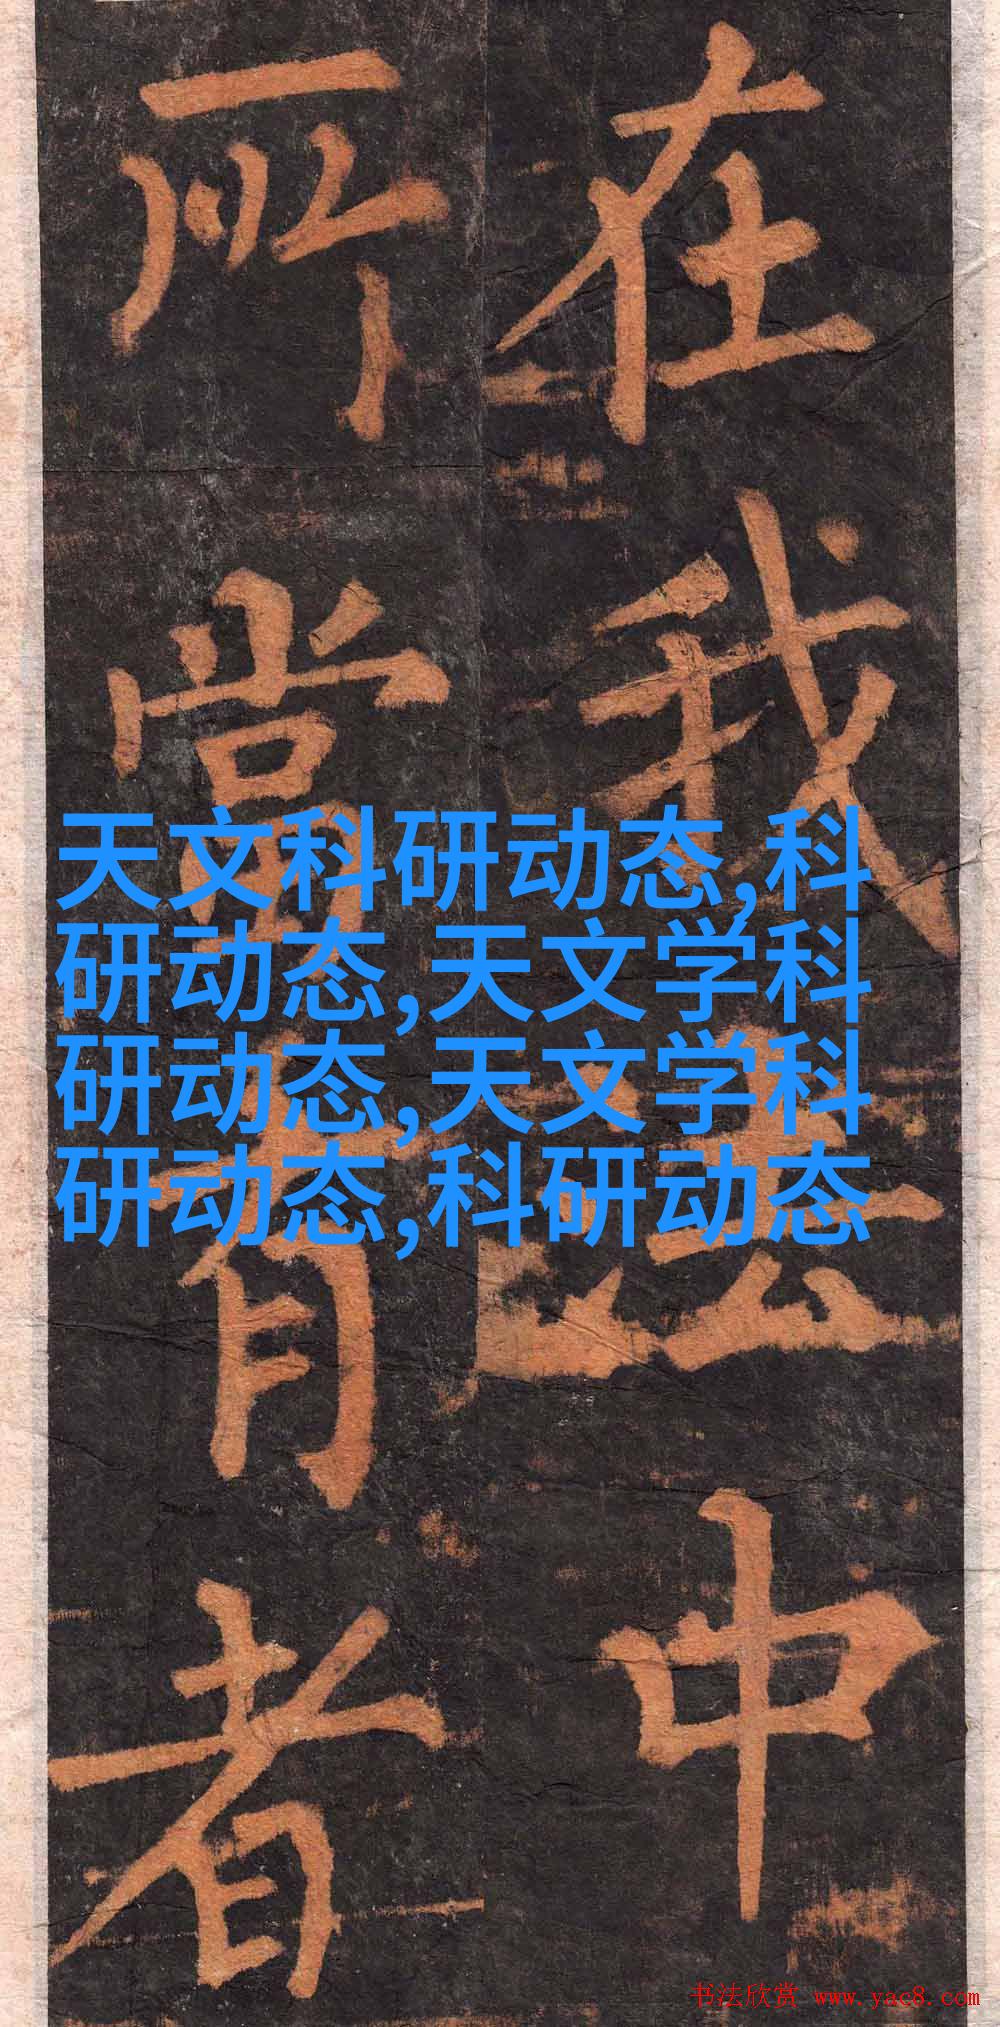 在我法中
所當有者
天文科研动态,科
研动态,天文学科
研动态,天文学科
研动态,科研动态
书法欣赏 www.yac8.com